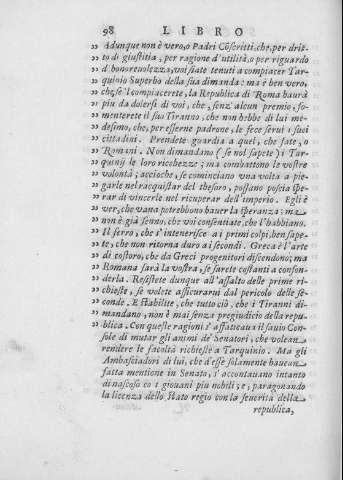 98 LIBRO
„ Adunque non è vero, o Padri Coscritti, che, per drit-
„ to di giustitia, per ragione d'utilità, o per riguardo
„ d'honorevolezza, voi siate tenuti a compiacer Tar-
„ quinio Superbo della sua dimanda: ma è ben vero,
„ che, se'l compiacerete, la Republica di Roma haurà
„ piu da dolersi di voi, che, senz'alcun premio, so-
„ menterete il suo Tiranno, che non hebbe di lui me-
„ desimo, che, per esserne padrone, le fece servi i suoi
„ cittadini. Prendete guardia a quel, che fate, o
„ Romani. Non dimandano (se nol sapete) i Tar-
„ quinij le loro ricchezze; ma combattono le vostre
„ volontà; accioche, se cominciano una volta a pie-
„ garle nel racquistar del thesoro, possano poscia spe-
„ rar di vincerle nel ricuperar dell'imperio. Egli è
„ ver, che vana potrebbono haver la speranza; ma
„ non è già senno, che voi consentiate, che l'habbiano.
„ Il ferro, che s'intenerisce a i primi colpi, ben sape-
„ te, che non ritorna duro a i secondi. Greca è l'arte
„ di costoro, che da Greci progenitori discendono; ma
„ Romana sarà la vostra, se sarete costanti a confon-
„ derla. Resistete dunque all'assalto delle prime ri-
„ chieste, se volete assicurarvi dal pericolo delle se-
„ conde. E stabilite, che tutto ciò, che i Tiranni di-
„ mandano, non è mai senza pregiudicio della repu-
„ blica. Con queste ragioni s'affaticava il savio Con-
sole di mutar gli animi de' Senatori, che volean
rendere le facoltà richieste a Tarquinio. Ma gli
Ambasciadori di lui, che d'esse solamente haveano
fatta mentione in Senato, s'accontavano intanto
di nascoso co i giovani piu nobili; e, paragonando
la licenza dello stato regio con la severità della
republica,